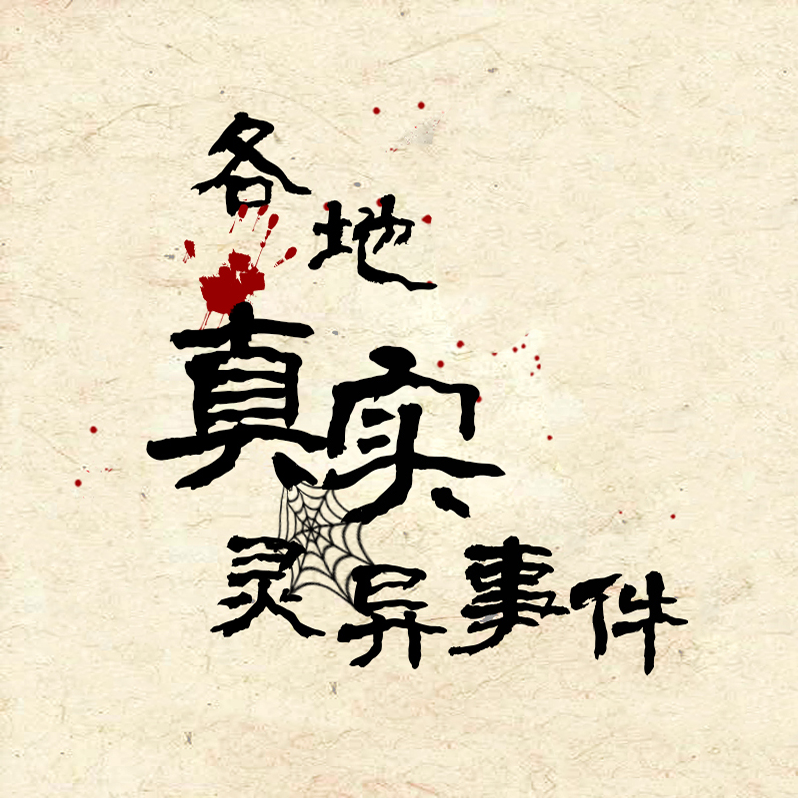 各地
真实
灵异事件